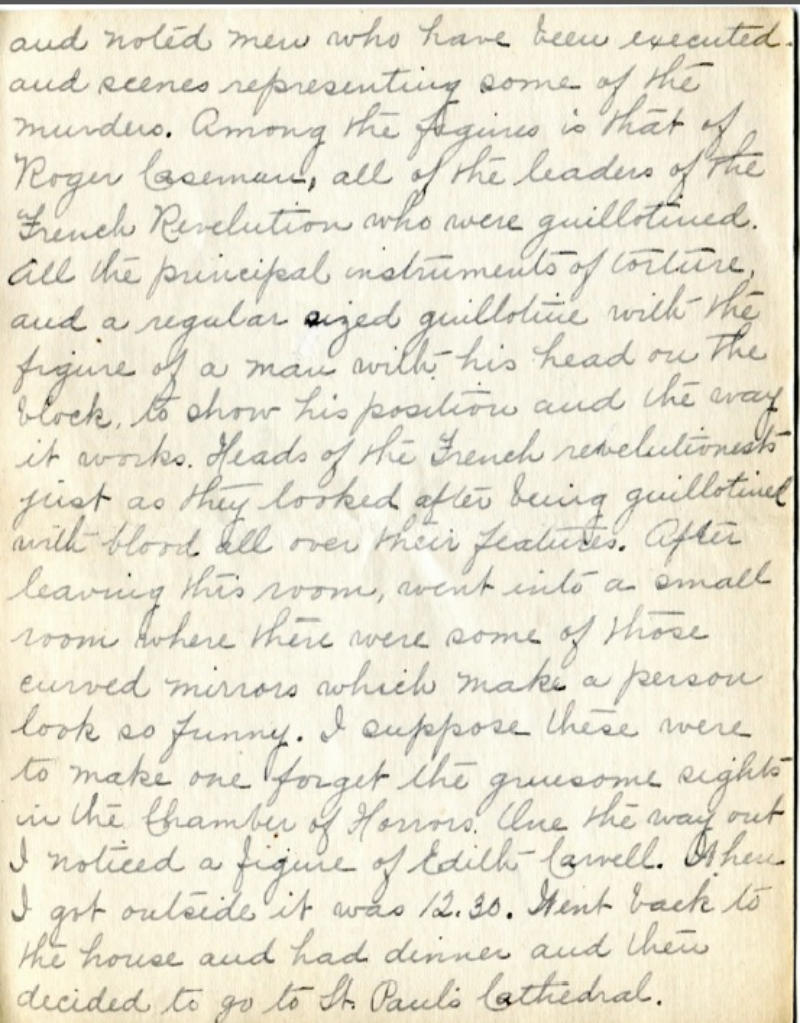 and noted men who have been executed.
and scenes representing some of the
murders. Among the figures is that of
Roger Caseman, all of the leaders of the
French Revelution who were guillotined.
All the principal instruments of torture,
and a regular sized guillotine with the
figure of a man with his head on the
block, to show his position and the way
it works. Heads of the French revelutionests
just as they looked after being guillotined
with blood all over their features. After
leaving this room, went into a small
room where there were some of those
curved mirrors which make a person
look so funny. I suppose these were
to make one forget the gruesome sights
in the Chamber of Horrors. One the way out
I noticed a figure of Edith Carvell. When
I got outside it was 12.30. Went back to
the house and had dinner and then
decided to go to St. Paul's Cathedral.